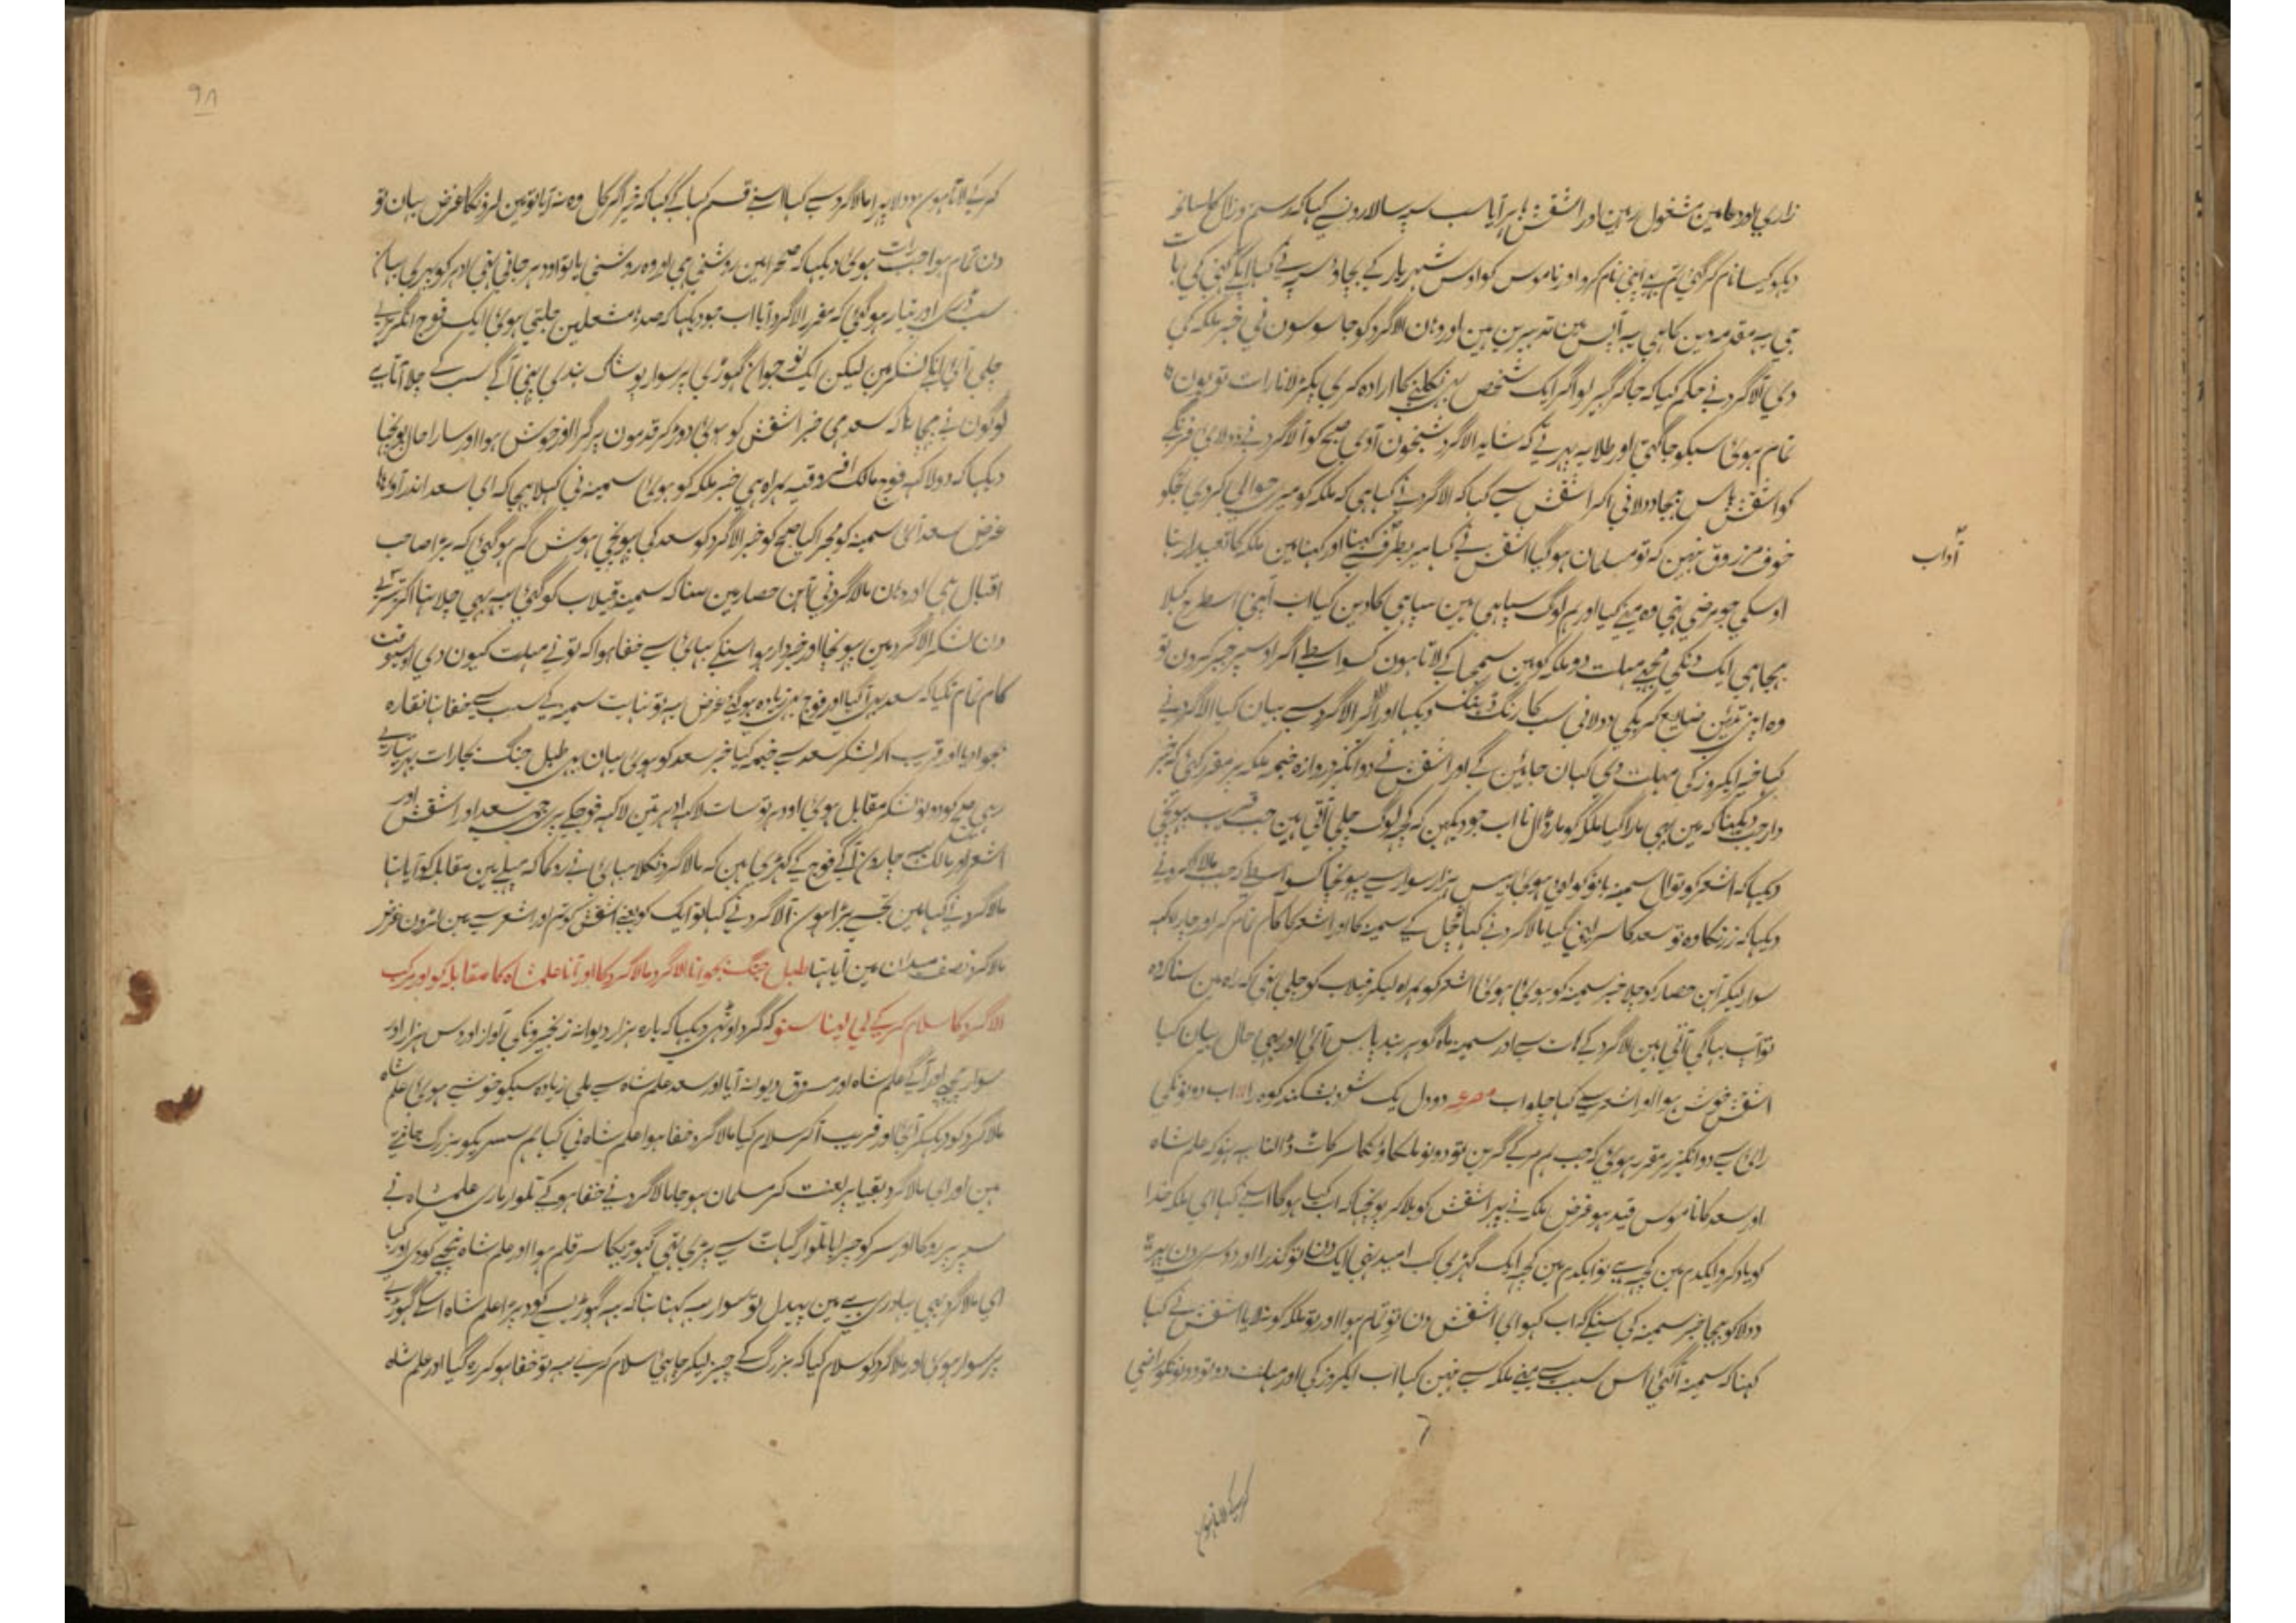 زاری اور دعا مین مشغول رہین اور اشقش باہر آیا سب سپہ سالارونسے کہا کہ رستم وزال کا سا
دیکہو کیسا نام کر گئی تم بہی اپنی نام کرو اور ناموس کو اوس شہریار کے بچاؤ سب نے کہا کہنی کی بات
ہی یہ مقدمہ دین کا ہی یہ آپس مین تدبیرین ہین اور وہان الاگرد کو جاسوسون نی خبر ملکہ کی
دی الاگرد نے حکم کیا کہ جا کر گہیر لو اگر ایک شخص بہی نکلنے کا ارادہ کری پکڑ لانا رات تو یون
تمام ہوئی سبکو جاگتی اور طلایہ پہرتے کہ شاید الاگرد شبخون آوی صبح کو الاگرد نے دولای فرنگی
کو اشقش پاس بہیجا دولا نی آکر اشقش سے کہا کہ الاگرد نے کہا ہی کہ ملکہ کو میری حوالی کر دی تجکو
خوف مرزوق نہین کہ تو مسلمان ہو گیا اشقش نے کہا میری طرف سے کہنا اور کہنا مین ملکہ کا تعبدار تہا
آداب
اوسکی جو مرضی تہی وہ مینے کیا اور ہم لوگ سپاہی ہین سپاہی کا دین کیا اب آپنی اسطرح کہلا
بہیجا ہی ایک دنکی مجہے مہلت دو ملکہ کو مین سمجہا کے لاتا ہون کسواسطے اگر اوسپر جبر کرون تو
وہ اپنی تئین ضایع کریگی دولا نی سب کا رنگ ڈہنگ دیکہا اور آکر الاگرد سے بیان کیا الاگرد نے
کہا خیر ایکروز کی مہلت دی کہان جاوین گے اور اشقش نے دو انگریز دروازہ خیمہ ملکہ پر مقرر کئی کہ خبر
دار جب دیکہنا کہ مین بہی مارا گیا ملکہ کو مار ڈالنا اب جو دیکہین کہ کچہ لوگ چلی آتی ہین جب قریب پہونچی
دیکہا کہ اشعر کوتوال سمینہ بانو کو لئی ہوئی بیس ہزار سوار سے پہونچا کسواسطے کہ جب مالاگرد نے
دیکہا کہ زرنگاوہ تو سعد کا سر لینی گیا مالاگرد نے کہا چل کے سمینہ کا اور اشعر کا کام تمام کر اور چار لاکہہ
سوار لیکر آہن حصار کو چلا خبر سمینہ کو ہوئی اشعر کو ہمراہ لیکر قیلاب کو چلی تہی کہ راہ مین سنا کہ وہ
تو آپ بہاگی آتی ہین الاگرد کے ہات سے اور سمینہ ماہ گوہر بند پاس آئی اور یہی حال بیان کیا
اشقش خوش ہوا اور اشعر سے کہا چلو اب مصرعہ دو دل یک شود بشکند کوہ را اب دونونکی
رای سے دو انگریز مقرر ہوئی کہ جب ہم مر کے گرین تو دونو ملکاؤنکا سر کاٹ ڈالنا یہ نہو کہ علمشاہ
اور سعد کا ناموس قید ہو غرض ملکہ نے پہر اشقش کو بلا کر پوچہا کہ اب کیا ہوگا اسنے کہا ای ملکہ خدا
کو یاد کرو ایکدم مین کچہ ہے تو ایکدم مین کچہ ایک گہڑی کی امید نہی ایک دن تو گذرا اور دوسری دن پہر
دولا کو بہیجا خبر سمینہ کی سنکے کہ اب کہو ای اشقش دن تو تمام ہوا اور تو ملکہ کو نلایا اشقش نے کہا
کہنا کہ سمینہ آ گئی اس سبب سے مینے ملکہ سے نہین کہا اب ایکروز کی اور مہلت دو تو دونونکو راضی
کر کے لاتا ہون
۹۸
کر کے لاتا ہون دولا پہرا مالاگرد سے کہا اسنے قسم کہا کے کہا کہ خیر اگر کل وہ نہ آیا تو مین لڑونگا غرض یہان تو
دن تمام ہوا جب رات ہوئی دیکہا کہ صحرا مین روشنی ہی اور وہ روشنی یا تو اودہر جاتی تہی ادہر کو پہری یہان
سب ڈری اور تیار ہو گئی کہ مقرر الاگرد آیا اب جو دیکہا کہ صدہا مشعلین جلتی ہوئی ایک فوج انگریزی
چلی آئی لشکر مین لیکن ایک نوجوان گہوڑی پر سوار پوشاک ہندی پہنی آگے سب کے چلا آتا ہے
لوگون نے پہچانا کہ سعد ہی خبر اشقش کو ہوئی دوڑ کر قدمون پر گرا اور خوش ہوا اور سارا حال پوچہا
دیکہا کہ دو لاکہہ فوج مالک ہمراہ ہی خبر ملکہ کو ہوئی سمینہ نی کہلا بہیجا کہ ای سعد اندر آؤ
غرض سعد آئی سمینہ کو مجرا کیا صبح کو خبر الاگرد کو سعد کی پہونچی ہوش گم ہو گئی کہ بڑا صاحب
اقبال ہی اور وہان مالاگرد نی آہن حصار مین سنا کہ سمینہ قیلاب کو گئی یہ بہی چلا تہا آکر تیسرے
دن لشکر الاگرد مین پہونچا اور خبردار ہوا اسنکے بہائی سے خفا ہوا کہ تو نے مہلت کیون دی اوسیوقت
کام تمام نکیا کہ سعد بہی آ گیا اور فوج بہی زیادہ ہوگئی غرض یہ تو نہایت سمینہ کے سبب سے خفا تہا نقارہ
بجوا دیا اور قریب آکر لشکر سعد سے خیمہ کیا خبر سعد کو ہوئی یہان بہی طبل جنگ بجا رات بہر تیاری
رہی صبح کو دونو لشکر مقابل ہوئی اودہر تو سات لاکہہ ادہر تین لاکہہ فوج کے پری جمی سعد اور اشقش اور
اشعر اور مالک یہ چارون آگے فوج کے کہڑی ہین کہ مالاگرد نکلا بہائی نے روکا کہ پہلے مین مقابلہ کو آیا تہا
مالاگرد نے کہا مین تجہسے بڑا ہون الاگرد نے کہا تو ایک کو یعنے اشقش کو تم اور اشعر سے مین لڑون غرض
مالاگرد نصف میدان مین آیا تہا طبل جنگ بجوانا الاگرد مالاگرد کا اور آنا علمشاہ کا مقابلہ کو اور مرکب
الاگرد کا سلام کر کے لی لینا سنو کہ گرد اوٹہی دیکہا کہ بارہ ہزار دیوانہ زنجیرونکی آواز اور دس ہزار اور
سوار پیچہے اور آگے علمشاہ اور مرزوق دیوانہ آیا اور سعد علمشاہ سے ملی زیادہ سبکو خوشی ہوئی علمشاہ
مالاگرد کو دیکہکر آئی اور قریب آکر سلام کیا مالاگرد خفا ہوا علمشاہ نی کہا ہم سسریکو بزرگ جانتے
ہین اور ای مالاگرد بقیا پر لعنت کر مسلمان ہو جا مالاگرد نے خفا ہو کے تلوار ماری علمشاہ نے
سپر پر روکا اور سر کو چرایا تلوار گہات سے پڑی تہی گہوڑیکا سر قلم ہوا اور علمشاہ نیچے کودی اور کہا
ای مالاگرد یہی بہادری ہے مین پیدل تو سوار یہ کہنا تہا کہ یہ گہوڑیسے کود پڑا علمشاہ اسکے گہوڑے
پر سوار ہوئی اور مالاگرد کو سلام کیا کہ بزرگ کے چیز لیکر چاہیی سلام کرے یہ تو خفا ہو کر رہ گیا اور علمشاہ